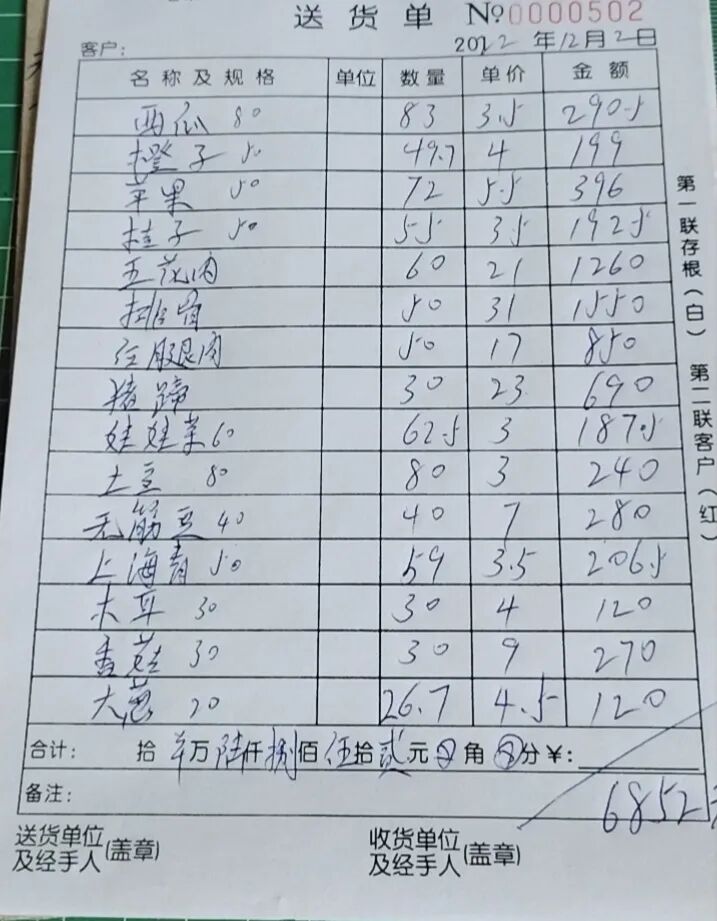 送货单 № 0000502
客户： 2022年12月2日
名称及规格 单位 数量 单价 金额
西瓜 80 83 3.5 290.5
橙子 50 49.7 4 199
苹果 50 72 5.5 396
桔子 50 55 3.5 192.5
五花肉 60 21 1260
排骨 50 31 1550
后腿肉 50 17 850
猪蹄 30 23 690
娃娃菜 60 62.5 3 187.5
土豆 80 80 3 240
无筋豆 40 40 7 280
上海青 50 59 3.5 206.5
木耳 30 30 4 120
香菇 30 30 9 270
大葱 20 26.7 4.5 120
合计： 拾 万陆仟捌佰伍拾贰元 角 分￥：
6852元
备注：
送货单位及经手人（盖章） 收货单位及经手人（盖章）
第一联存根（白） 第二联客户（红）